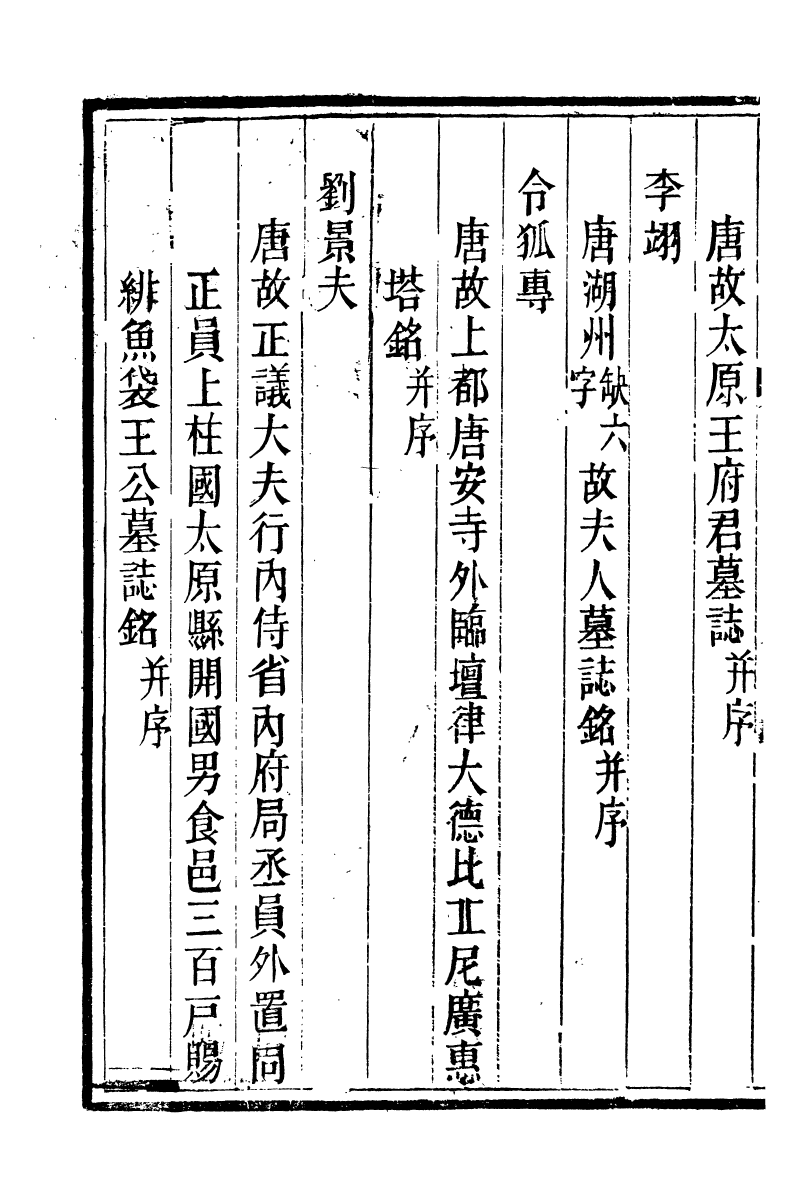 唐故太原王府君墓誌并序
李翊
唐湖州缺六字故夫人墓誌銘并序
令狐專
唐故上都唐安寺外臨壇律大德比丘尼廣惠
塔銘并序
劉景夫
唐故正議大夫行內侍省內府局丞員外置同
正員上柱國太原縣開國男食邑三百戸賜
緋魚袋王公墓誌銘并序